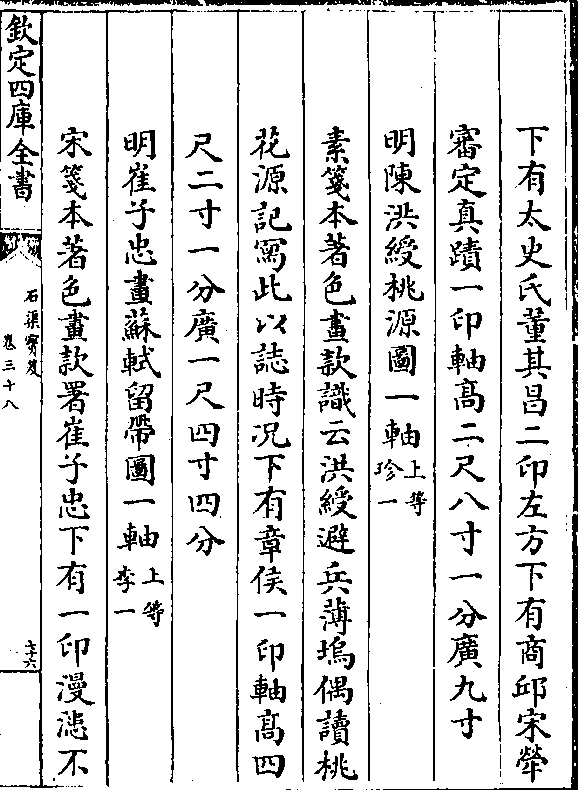 下有太史氏董其昌二印左方下有商邱宋犖
審定真蹟一印軸髙二尺八寸一分廣九寸
明陳洪綬桃源圖一軸上等珍一
素箋本著色畫款識云洪綬避兵薄塢偶讀桃
花源記寫此以誌時況下有章侯一印軸髙四
尺二寸一分廣一尺四寸四分
明崔子忠畫蘇軾留帶圖一軸上等李一
宋箋本著色畫款署崔子忠下有一印漫漶不
欽定四庫全書
石渠寳笈
卷三十八